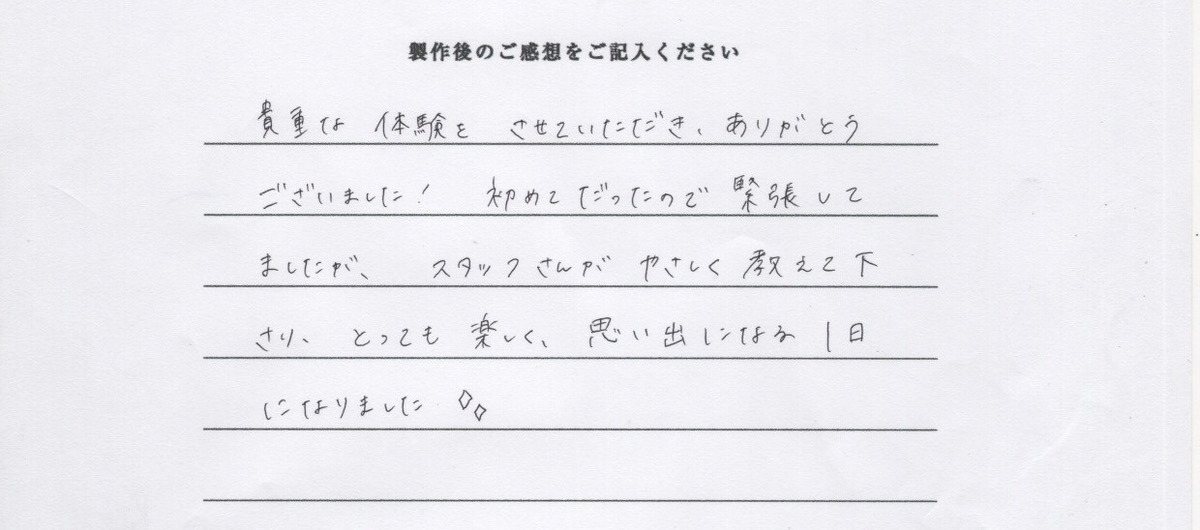 製作後のご感想をご記入ください
貴重な 体験を させていただき、ありがとう
ございました! 初めてだったので 緊張して
ましたが、 スタッフさんが やさしく 教えて下
さり、 とっても 楽しく、 思い出になる 1日
になりました ◇◇